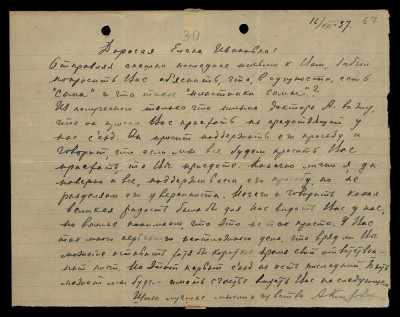 11/VII-37. 67
30
Дорогая Елена Ивановна!
Отправляя спешно последнее письмо к Вам, забыл
попросить Вас объяснить, что, в сущности, есть
"сома" и что такое "пластинки сомы"?
Из полученного только что письма доктора А. вижу,
что он просит Вас приехать на предстоящий у
нас съезд. Он просит поддержать его просьбу и
говорит, что если мы все будем просить Вас
приехать, то Вы приедете. Конечно лично я, да
наверно и все, поддерживаем его просьбу, но не
разделяем его уверенности. Нечего и говорить какая
великая радость была бы для нас видеть Вас у нас,
но вполне понимаем что это не так просто. У Вас
так много серьезного неотложного дела, что вряд ли Вы
можете оставить хотя бы короткое время свой ответствен-
ный пост. Но этот первый съезд не есть последний. Быть
может мы будем иметь счастье видеть Вас на следующем.
Шлю лучшие мысли и чувства